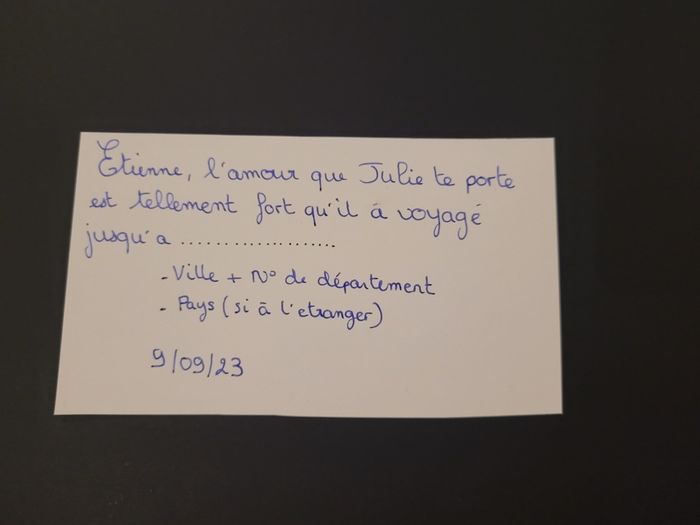 Etienne, l'amour que Julie te porte
est tellement fort qu'il à voyagé
jusqu'a ......................
- Ville + N° de département
- Pays (si à l'etranger)
9/09/23